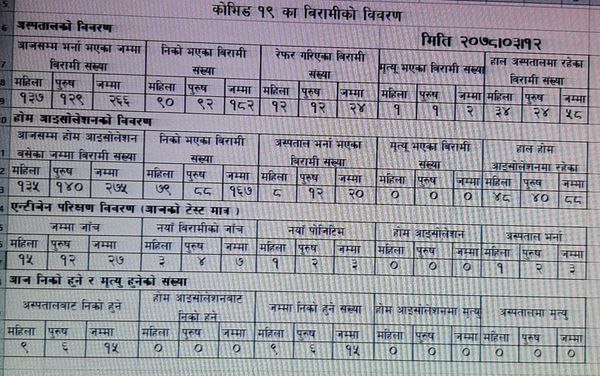 कोभिड १९ का विरामीको विवरण
अस्पतालको विवरण मिति २०७८।०३।१२
आजसम्म भर्ना भएका जम्मा विरामी संख्या निको भएका विरामी संख्या रेफर गरिएका विरामी संख्या मृत्यू भएका विरामी संख्या हाल अस्पतालमा रहेका विरामी संख्या
महिला पुरुष जम्मा महिला पुरुष जम्मा महिला पुरुष जम्मा महिला पुरुष जम्मा महिला पुरुष जम्मा
१३७ १२९ २६६ ९० ९२ १८२ १२ १२ २४ १ १ २ ३४ २४ ५८
होम आइसोलेशनको विवरण
आजसम्म होम आइसोलेशन बसेका जम्मा विरामी संख्या निको भएका विरामी संख्या अस्पताल भर्ना भएका विरामी संख्या मृत्यू भएका विरामी संख्या हाल होम आइसोलेशनमा रहेका
महिला पुरुष जम्मा महिला पुरुष जम्मा महिला पुरुष जम्मा महिला पुरुष जम्मा महिला पुरुष जम्मा
१३५ १४० २७५ ७९ ८८ १६७ ८ १२ २० ० ० ० ४८ ४० ८८
एन्टीजेन परिक्षण विवरण (आजको टेस्ट मात्र)
जम्मा जाँच नयाँ विरामीको जाँच नयाँ पोजिटिभ होम आइसोलेशन अस्पताल भर्ना
महिला पुरुष जम्मा महिला पुरुष जम्मा महिला पुरुष जम्मा महिला पुरुष जम्मा महिला पुरुष जम्मा
१५ १२ २७ ३ ४ ७ १ २ ३ ० ० ० १ २ ३
आज निको हुने र मृत्यु हुनेको संख्या
अस्पतालबाट निको हुने होम आइसोलेशनबाट निको हुने जम्मा निको हुने संख्या होम आइसोलेशनमा मृत्यु अस्पतालमा मृत्यु
महिला पुरुष जम्मा महिला पुरुष जम्मा महिला पुरुष जम्मा महिला पुरुष जम्मा महिला पुरुष जम्मा
९ ६ १५ ० ० ० ९ ६ १५ ० ० ० ० ० ०